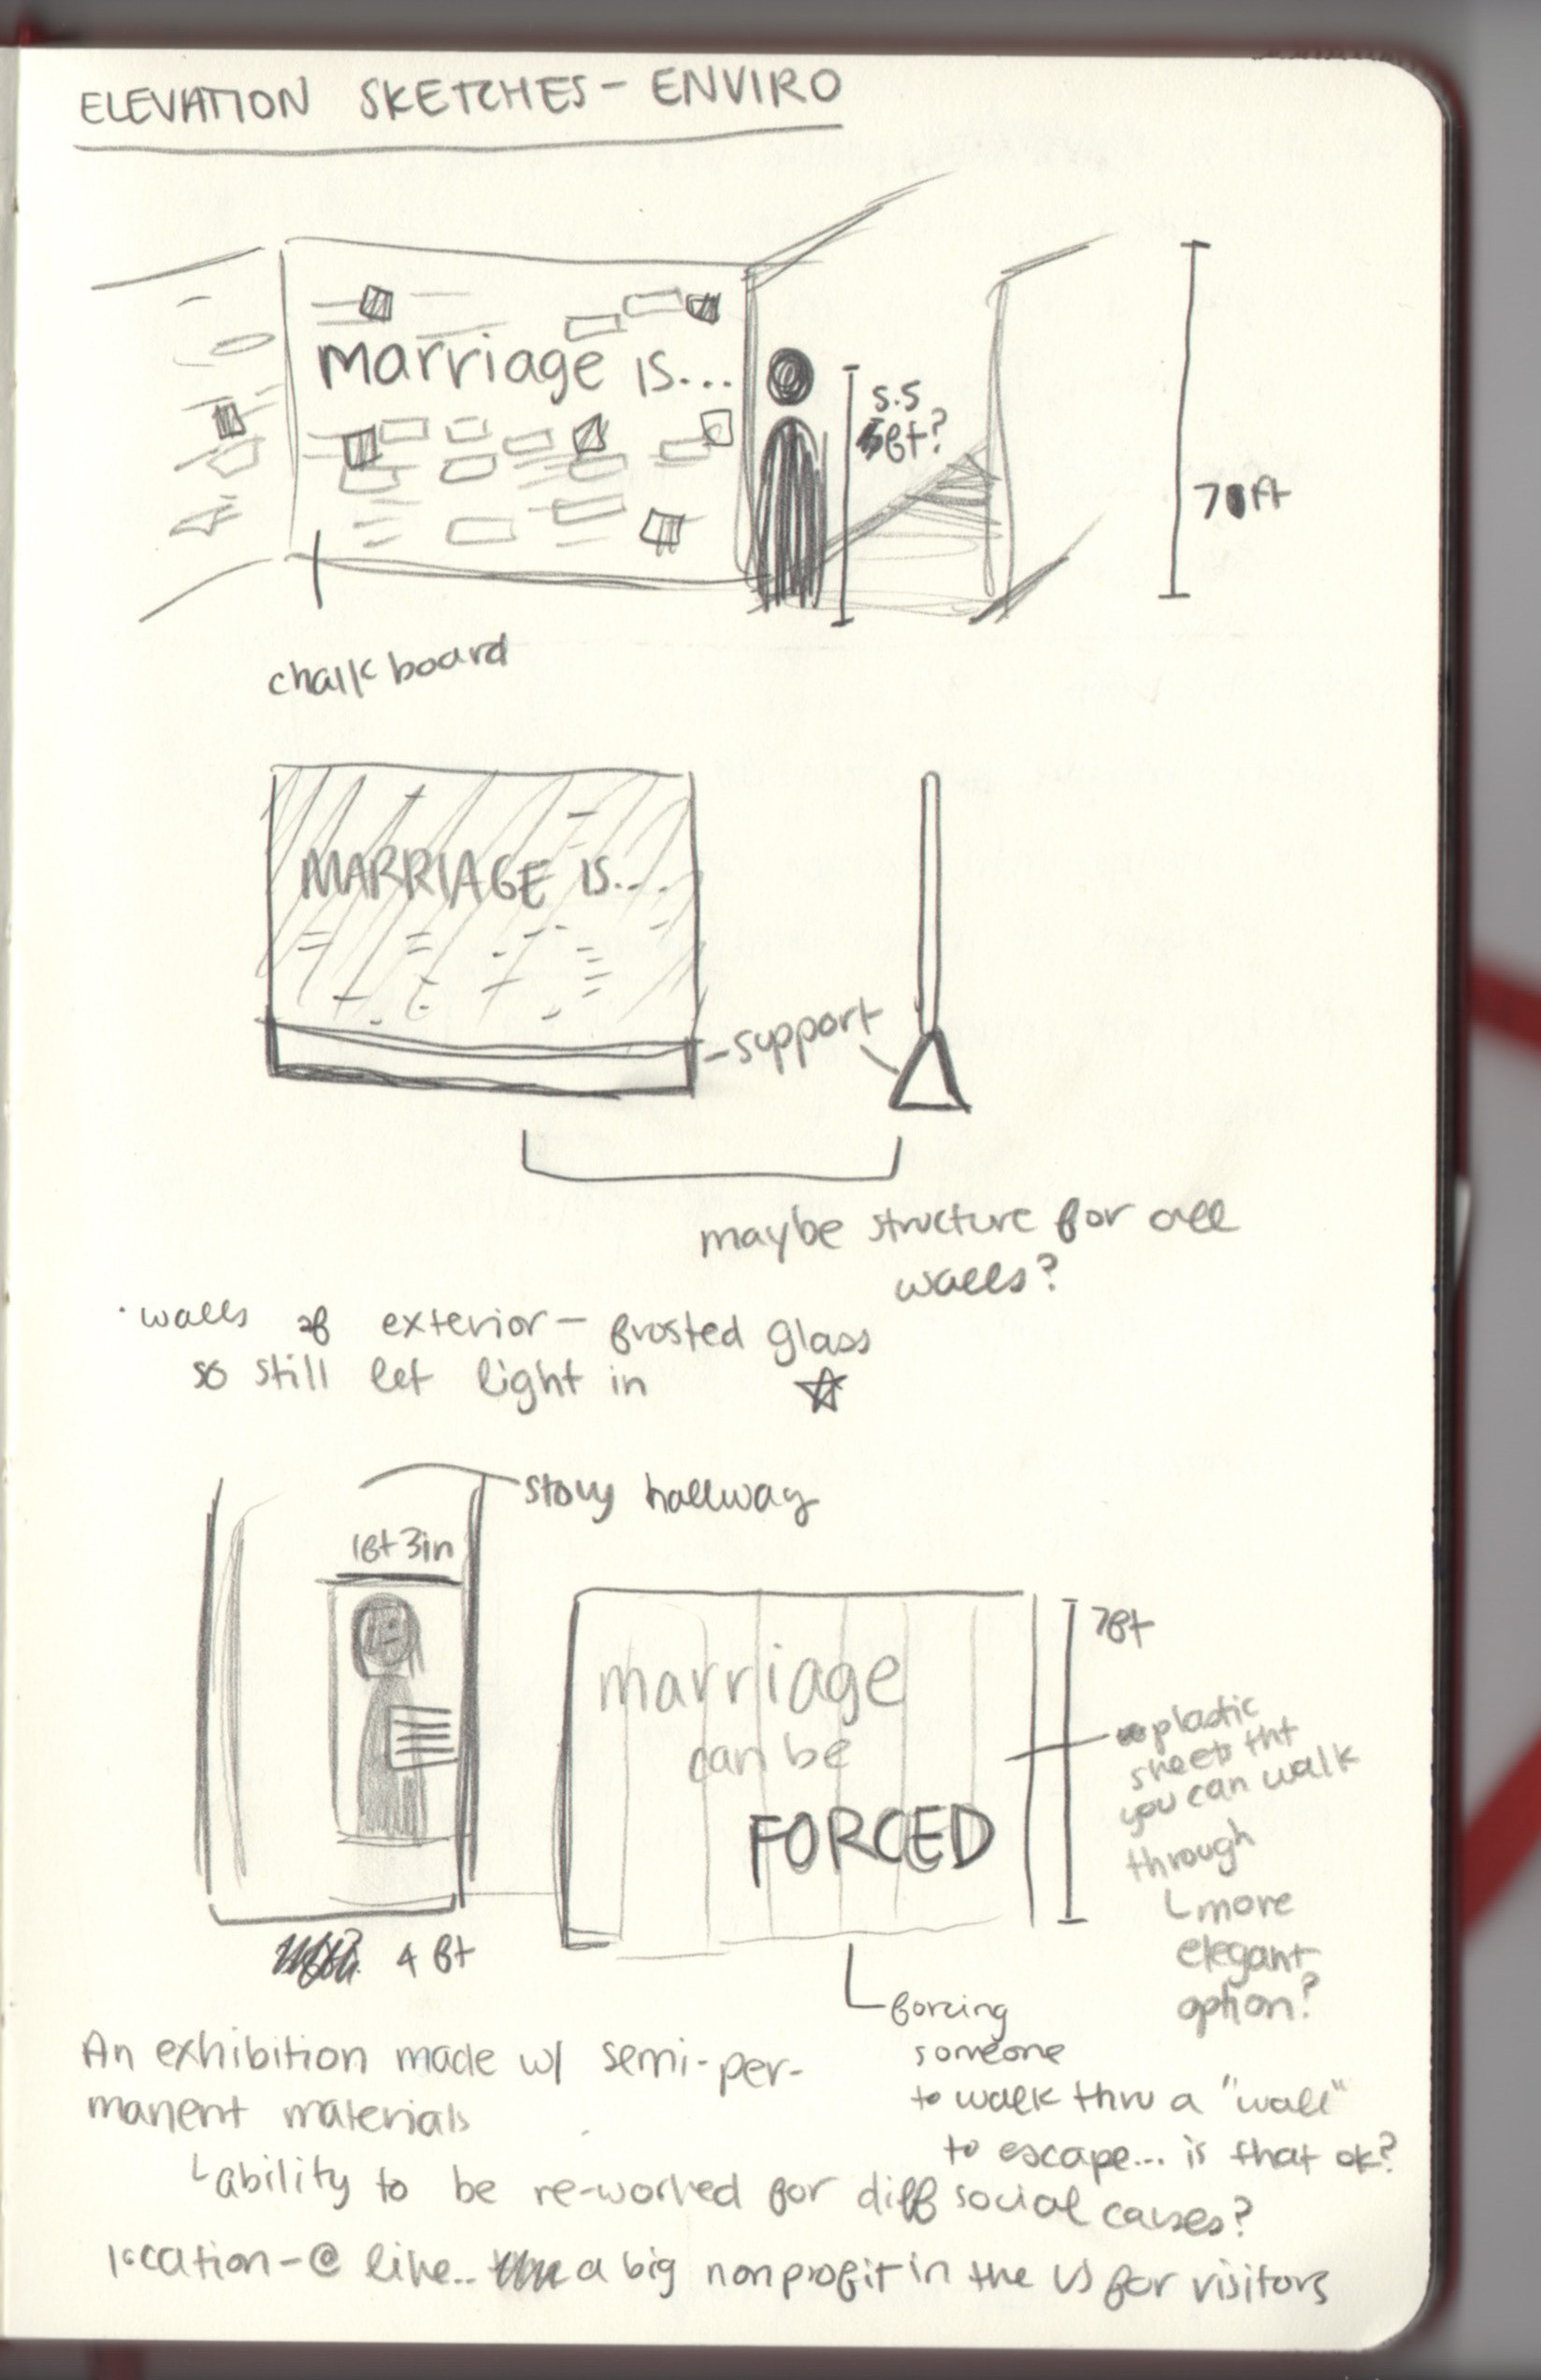 ELEVATION SKETCHES - ENVIRO
marriage is...
5.5
ft?
7 ft
chalk board
MARRIAGE IS...
- support
maybe structure for all
walls?
· walls of exterior - frosted glass
so still let light in ☆
story hallway
1ft 3in
marriage
can be
FORCED
7ft
plastic
sheets tht
you can walk
through
more
elegant
option?
4 ft
forcing
someone
to walk thru a "wall"
to escape... is that ok?
An exhibition made w/ semi-per-
manent materials
ability to be re-worked for diff social causes?
location - @ like.. a big nonprofit in the US for visitors